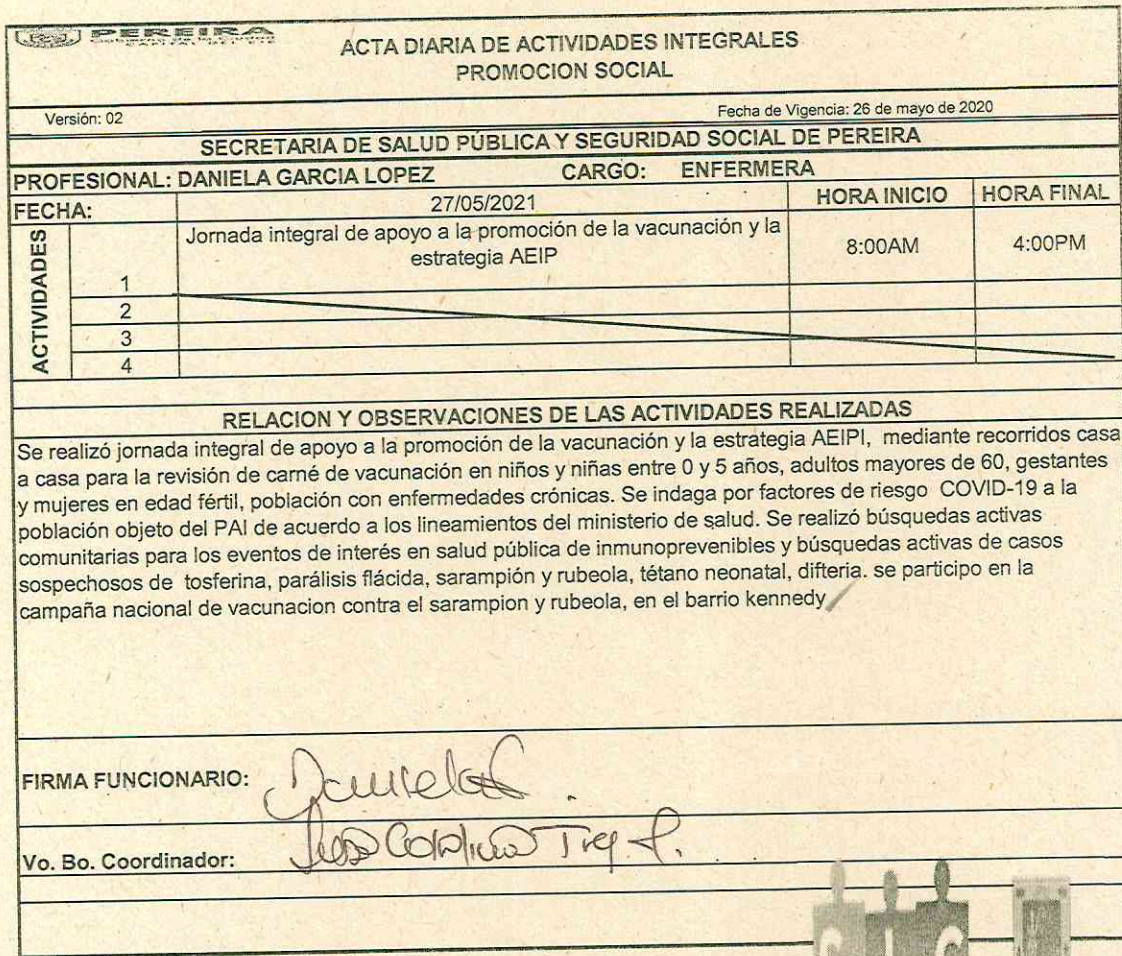 PEREIRA
ACTA DIARIA DE ACTIVIDADES INTEGRALES
PROMOCION SOCIAL
Versión: 02 Fecha de Vigencia: 26 de mayo de 2020
SECRETARIA DE SALUD PÚBLICA Y SEGURIDAD SOCIAL DE PEREIRA
PROFESIONAL: DANIELA GARCIA LOPEZ CARGO: ENFERMERA
FECHA: 27/05/2021 HORA INICIO HORA FINAL
ACTIVIDADES
1 Jornada integral de apoyo a la promoción de la vacunación y la 8:00AM 4:00PM
estrategia AEIP
2
3
4
RELACION Y OBSERVACIONES DE LAS ACTIVIDADES REALIZADAS
Se realizó jornada integral de apoyo a la promoción de la vacunación y la estrategia AEIPI, mediante recorridos casa
a casa para la revisión de carné de vacunación en niños y niñas entre 0 y 5 años, adultos mayores de 60, gestantes
y mujeres en edad fértil, población con enfermedades crónicas. Se indaga por factores de riesgo COVID-19 a la
población objeto del PAI de acuerdo a los lineamientos del ministerio de salud. Se realizó búsquedas activas
comunitarias para los eventos de interés en salud pública de inmunoprevenibles y búsquedas activas de casos
sospechosos de tosferina, parálisis flácida, sarampión y rubeola, tétano neonatal, difteria. se participo en la
campaña nacional de vacunacion contra el sarampion y rubeola, en el barrio kennedy
FIRMA FUNCIONARIO:
Vo. Bo. Coordinador: